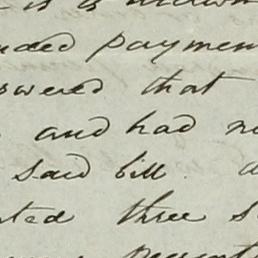 it is
nded paymen
swered that
and had no
said bill
ted three s